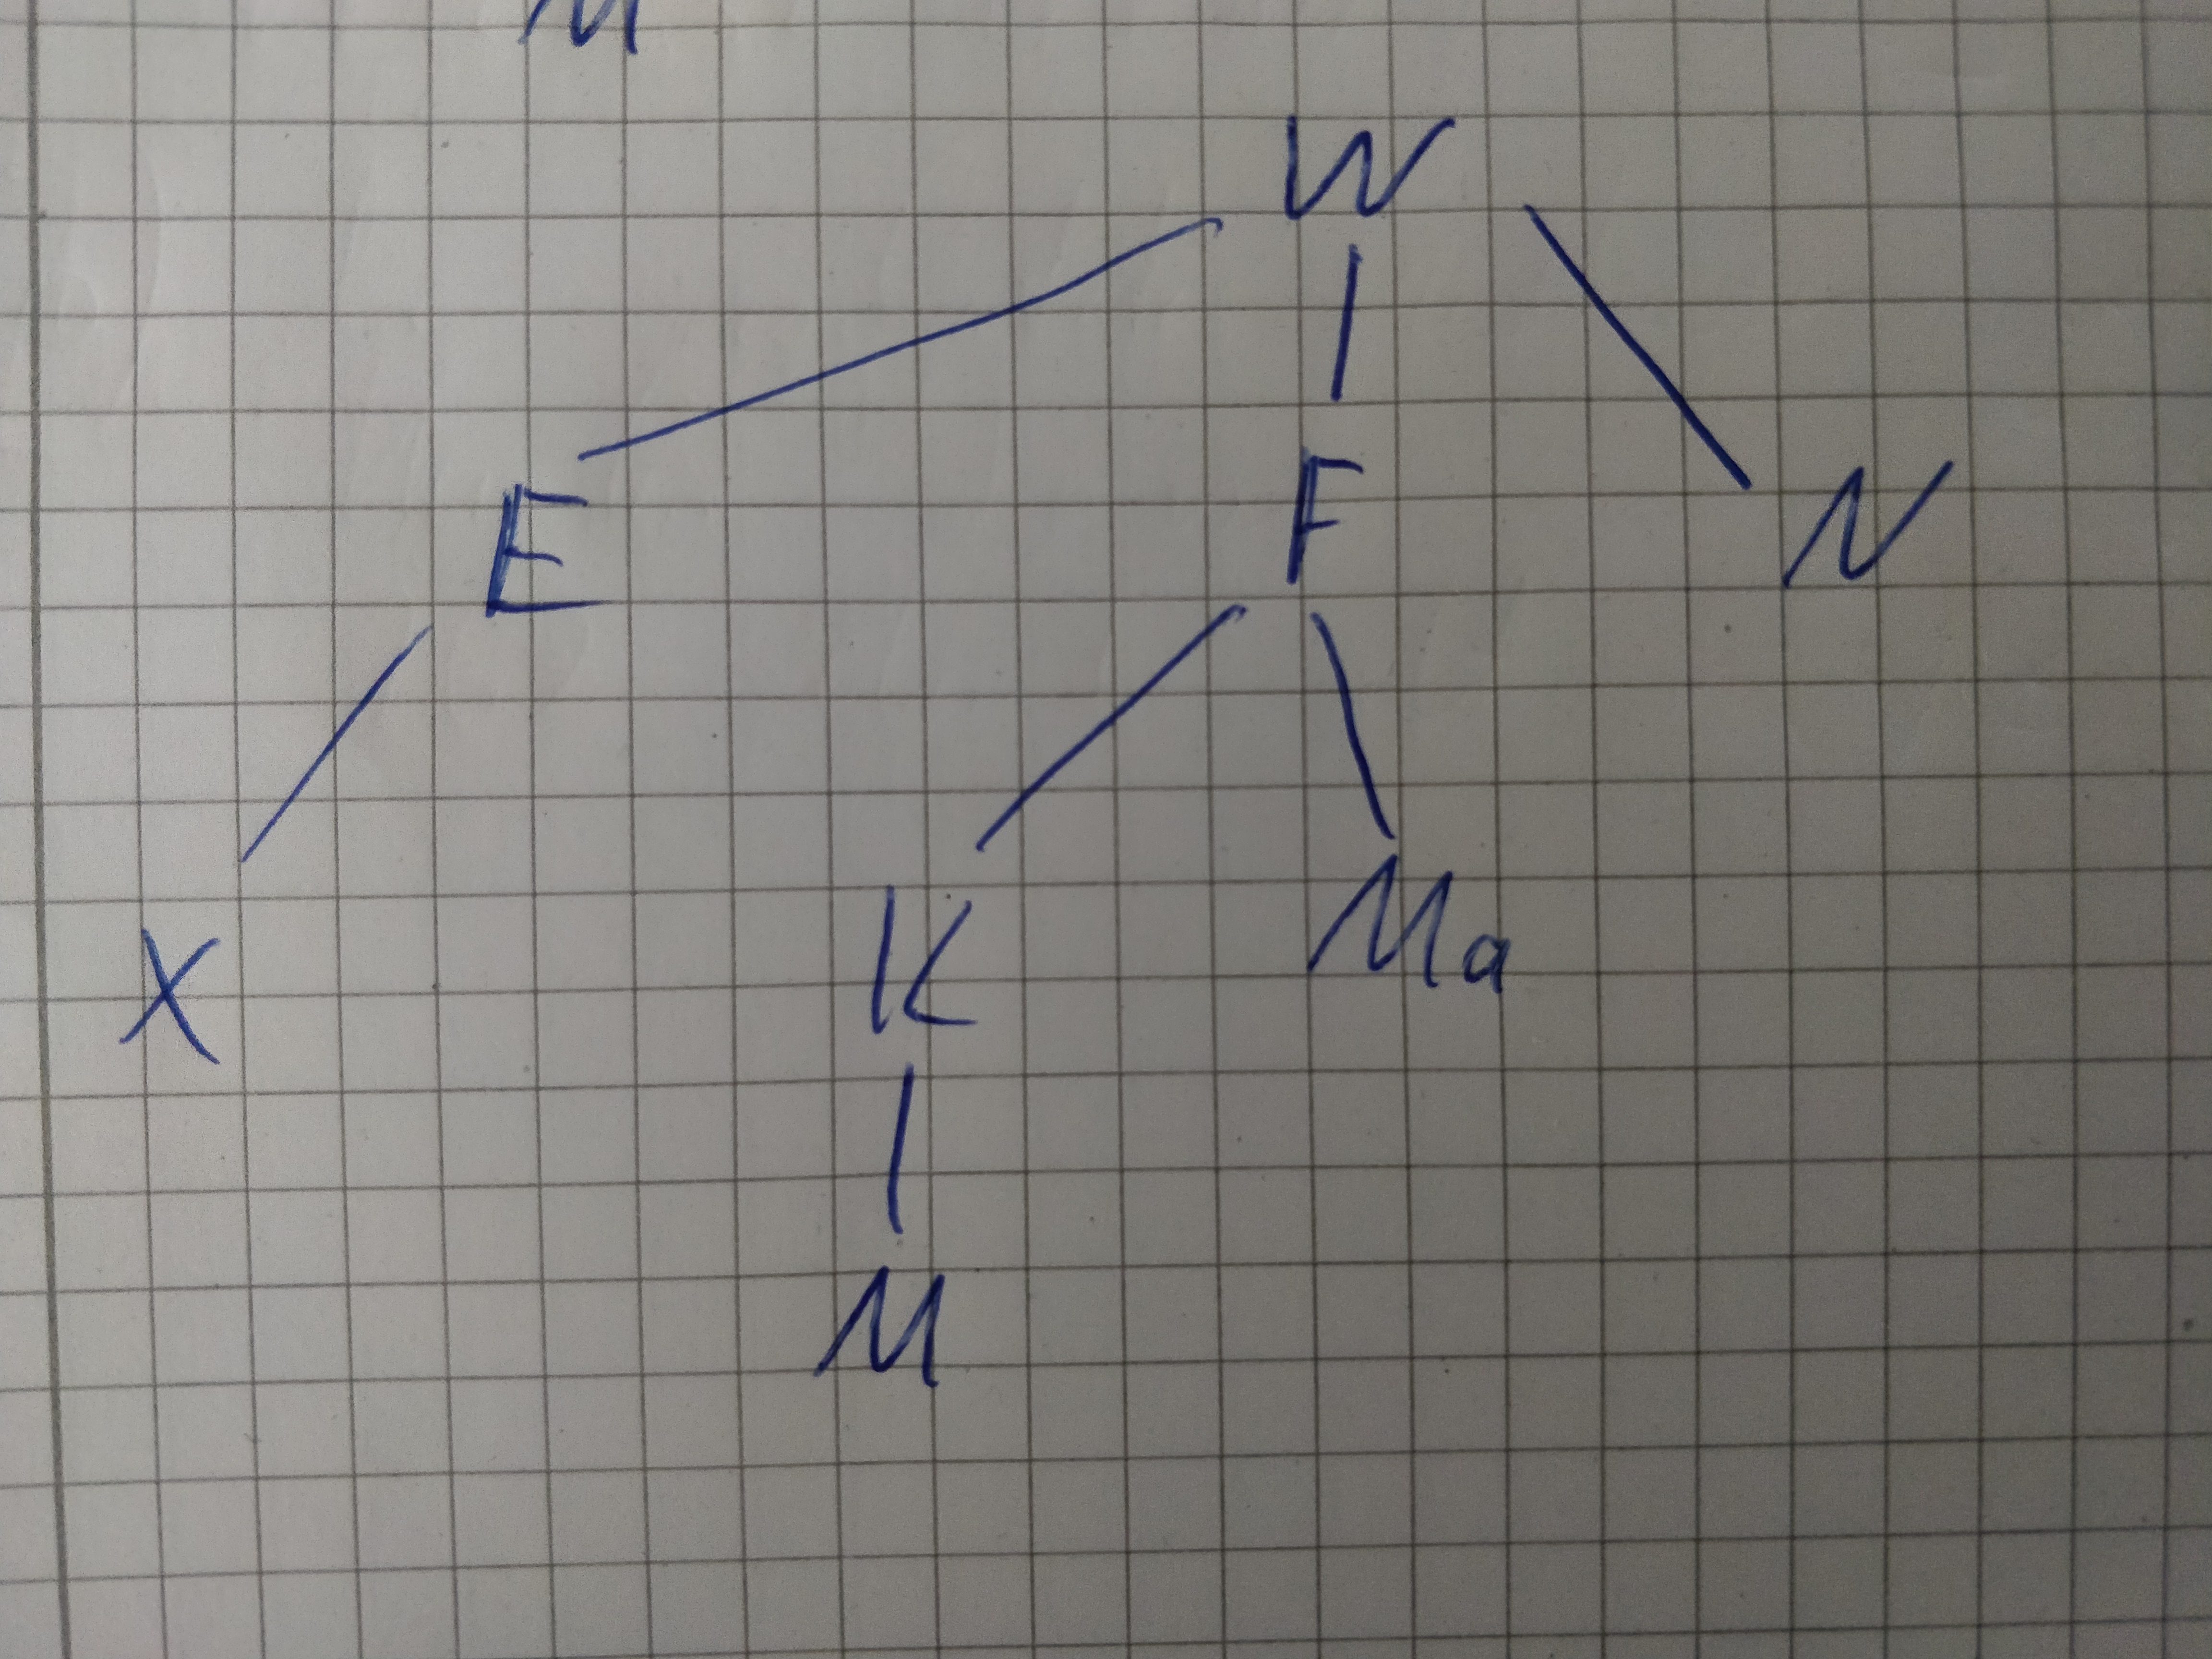 M
W
E F N
X K Ma
M